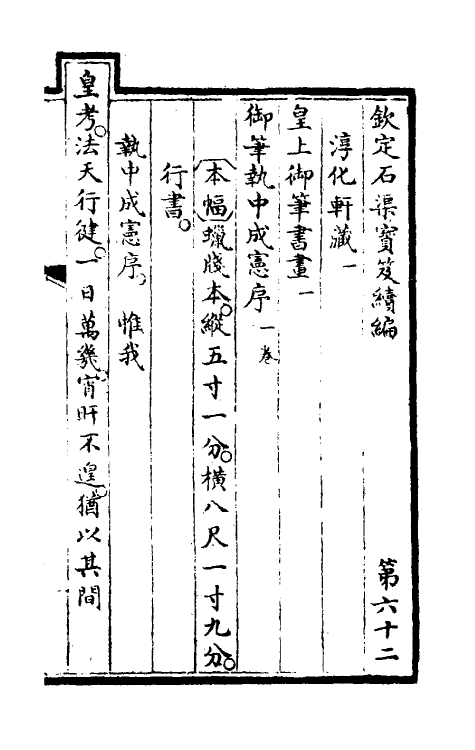 欽定石渠寶笈續編　第六十二
淳化軒藏一
皇上御筆書畫一
御筆執中成憲序 一卷
本幅蠟牋本。縱五寸一分。橫八尺一寸九分。
行書。
執中成憲序。惟我
皇考。法天行健。一日萬幾。宵旰不遑。猶以其間